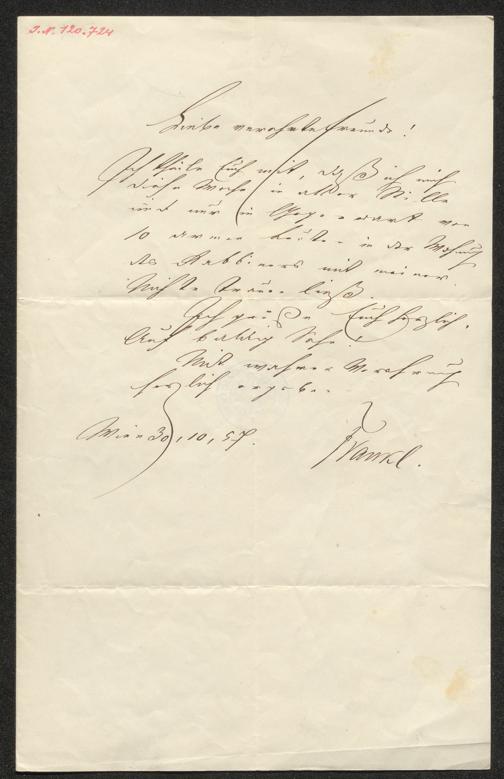 I.N. 120.724
Liebe verehrte Freunde!
Ich theile Euch mit, daß ich mich
diese Woche in aller Stille
und nur in Gegenwart von
10 armen Leuten in der Wohnung
des Rabbiners mit meiner
Nichte trauen ließ.
Ich grüße Euch herzlich.
Auf baldig Sehen!
Mit wahrer Verehrung
herzlich ergeben
Wien 30, 10, 57.
Frankl.